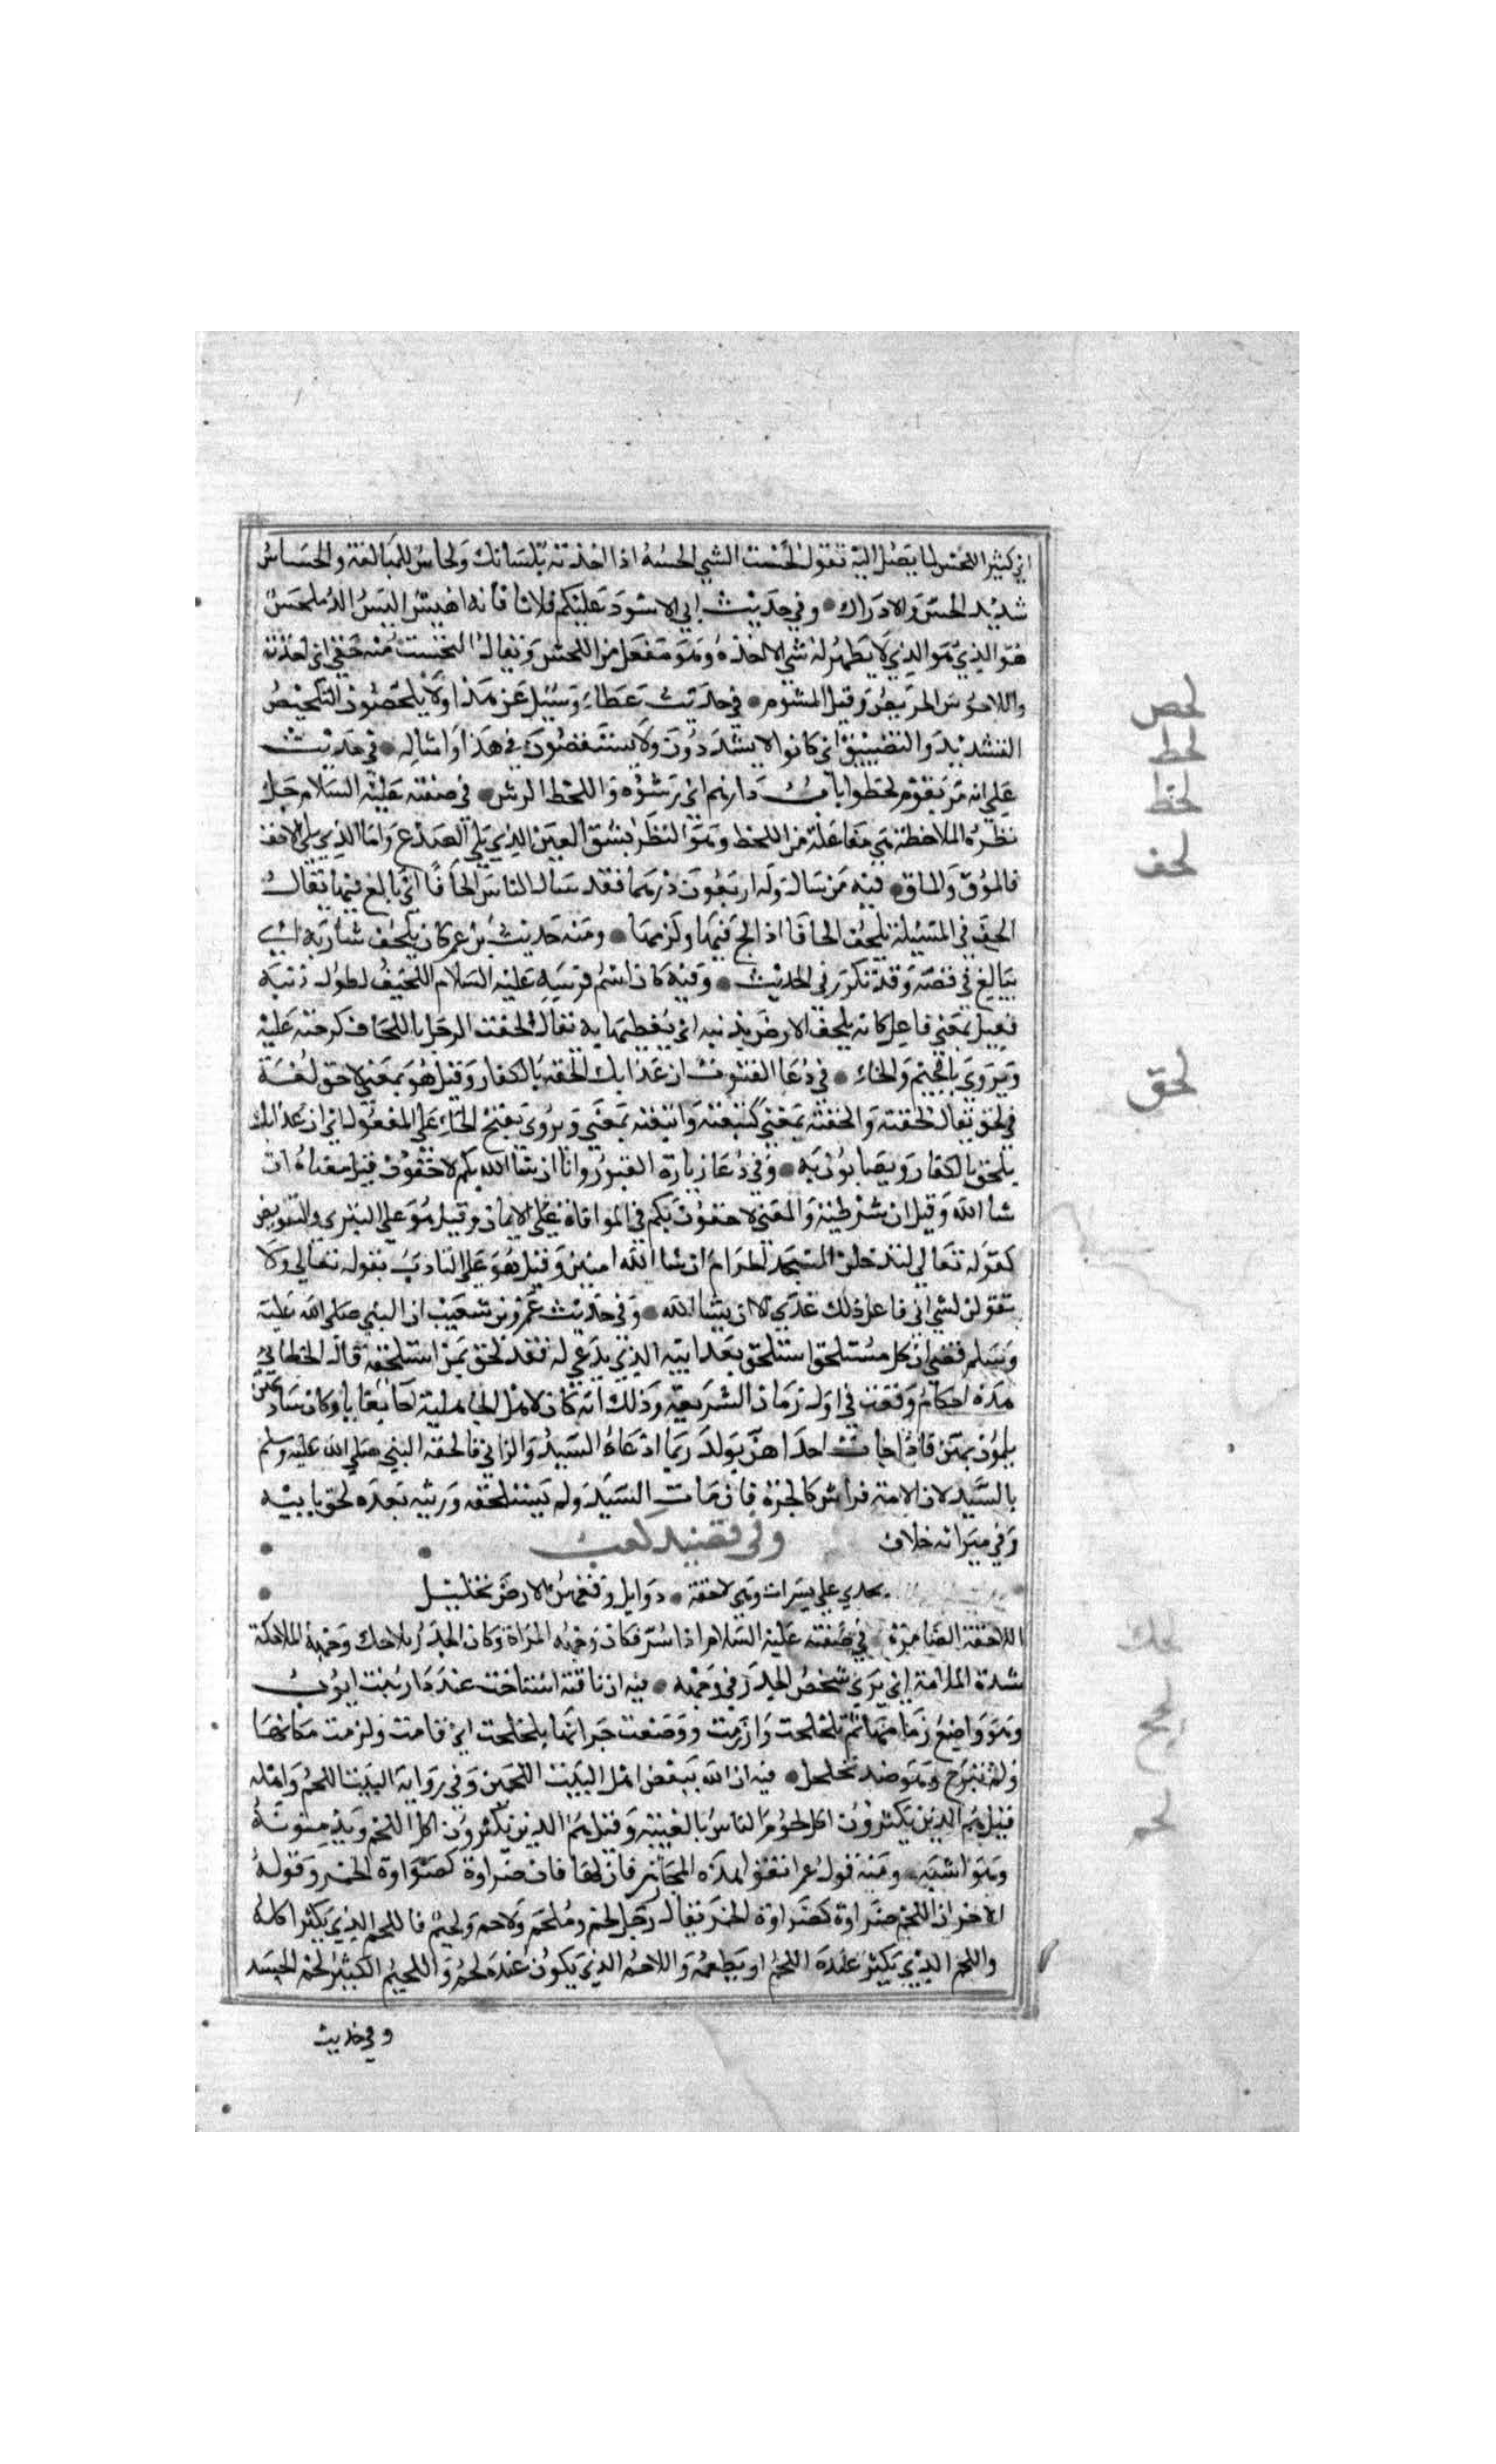 اي كثير اللحس لما يصل اليه تقول لحست الشي الحسه اذا اخذته بلسانك ولحاس للمبالغة والحساس
شديد الحس والادراك • وفي حديث ابي الاسود عليكم فلانا فانه اهيس اليس الد ملحس
هو الذي لا يظهر له شي الا اخذه وهو مفعل من اللحس ويقال التحست منه حقي اي اخذته
واللاحوس الحريص وقيل المشوم • في حديث عطاء وسيل عن هذا ولا يلحصون التلحيص
التشديد والتضييق اي كانوا لا يشددون ولا يستقصون في هذا وامثاله • في حديث
علي انه مر بقوم لحطوا باب دارهم اي رشوه واللحط الرش • في صفته عليه السلام جل
نظره الملاحظة هي مفاعلة من اللحظ وهو النظر بشق العين الذي يلي الصدغ واما الذي يلي الانف
فالموق والماق • فيه من سال وله اربعون درهما فقد سال الناس الحافا اي بالغ فيها يقال
الحف في المسيلة يلحف الحافا اذا لح فيها ولزمها • ومنه حديث بن عمر كان يلحف شاربه اي
يبالغ في قصه وقد تكرر في الحديث • وفيه كان اسم فرسه عليه السلام اللحيف لطول ذنبه
فعيل بمعني فاعل كانه يلحف الارض بذنبه اي يغطيها به يقال لحفت الرجل باللحاف طرحته عليه
ويروي بالجيم والخاء • في دعا القنوت ان عذابك بالكفار ملحق وقيل هو بمعني لاحق لغة
في لحق يقال لحقته والحقته بمعني كتبعته واتبعته بمعني ويروي بفتح الحاء علي المفعول اي ان عذابك
يلحق بالكفار ويصابون به • وفي دعا زيارة القبور وانا ان شا الله بكم لاحقون قيل معناه اذ
شا الله وقيل ان شرطية والمعني لاحقون بكم في الموافاة علي الايمان وقيل هو علي التبري والتفويض
كقوله تعالي لتدخلن المسجد الحرام ان شا الله امنين وقيل هو علي التادب بقوله تعالي ولا
تقولن لشي اني فاعل ذلك غدا الا ان يشا الله • وفي حديث عمرو بن شعيب ان النبي صلي الله عليه
وسلم قضي ان كل مستلحق استلحق بعد ابيه الذي يدعي له فقد لحق بمن استلحقه قال الخطابي
هذه احكام وقعت في اول زمان الشريعة وذلك انه كان لاهل الجاهلية اما بغايا وكان سادتهن
يلمون بهن فاذا جات احداهن بولد ربما ادعاه السيد والزاني فالحقه النبي صلي الله عليه وسلم
بالسيد لان الامة فراش كالحرة فان مات السيد ولم يستلحقه ورثته بعده لحق بابيه
وفي ميراثه خلاف وفي قصيد كعب
تحدي علي يسرات وهي لاحقة • ذوابل وقعهن الارض تحليل
اللاحقة الضامرة • في صفته عليه السلام اذا سر فكان وجهه المراة وكان الجدر تلاحك وجهه الملاحكة
شدة الملامة اي يري شخص الجدر في وجهه • فيه ان ناقته استناخت عند دار بيت ايوب
وهو واضع زمامها ثم تلحلحت وارزمت ووضعت جرانها تلحلحت اي قامت ولزمت مكانها
ولم تبرح وهو ضد تحلحل • فيه ان الله يبغض اهل البيت اللحمين وفي رواية البيت اللحم واهله
قيل هم الذين يكثرون اكل لحوم الناس بالغيبة وقيل هم الذين يكثرون اكل اللحم ويدمنونه
وهو اشبه • ومنه قول عمر اتقوا هذه المجازر فان لها ضراوة كضراوة الخمر وقوله
الاخر ان للحم ضراوة كضراوة الخمر يقال رجل لحم وملحم ولاحم ولحيم فاللحم الذي يكثر اكله
والملحم الذي يكثر عنده اللحم او يطعمه واللاحم الذي يكون عنده لحم واللحيم الكثير لحم الجسد
وفي حديث
لحص
لحط
لحظ
لحف
لحق
لحك
لحلح
لحم